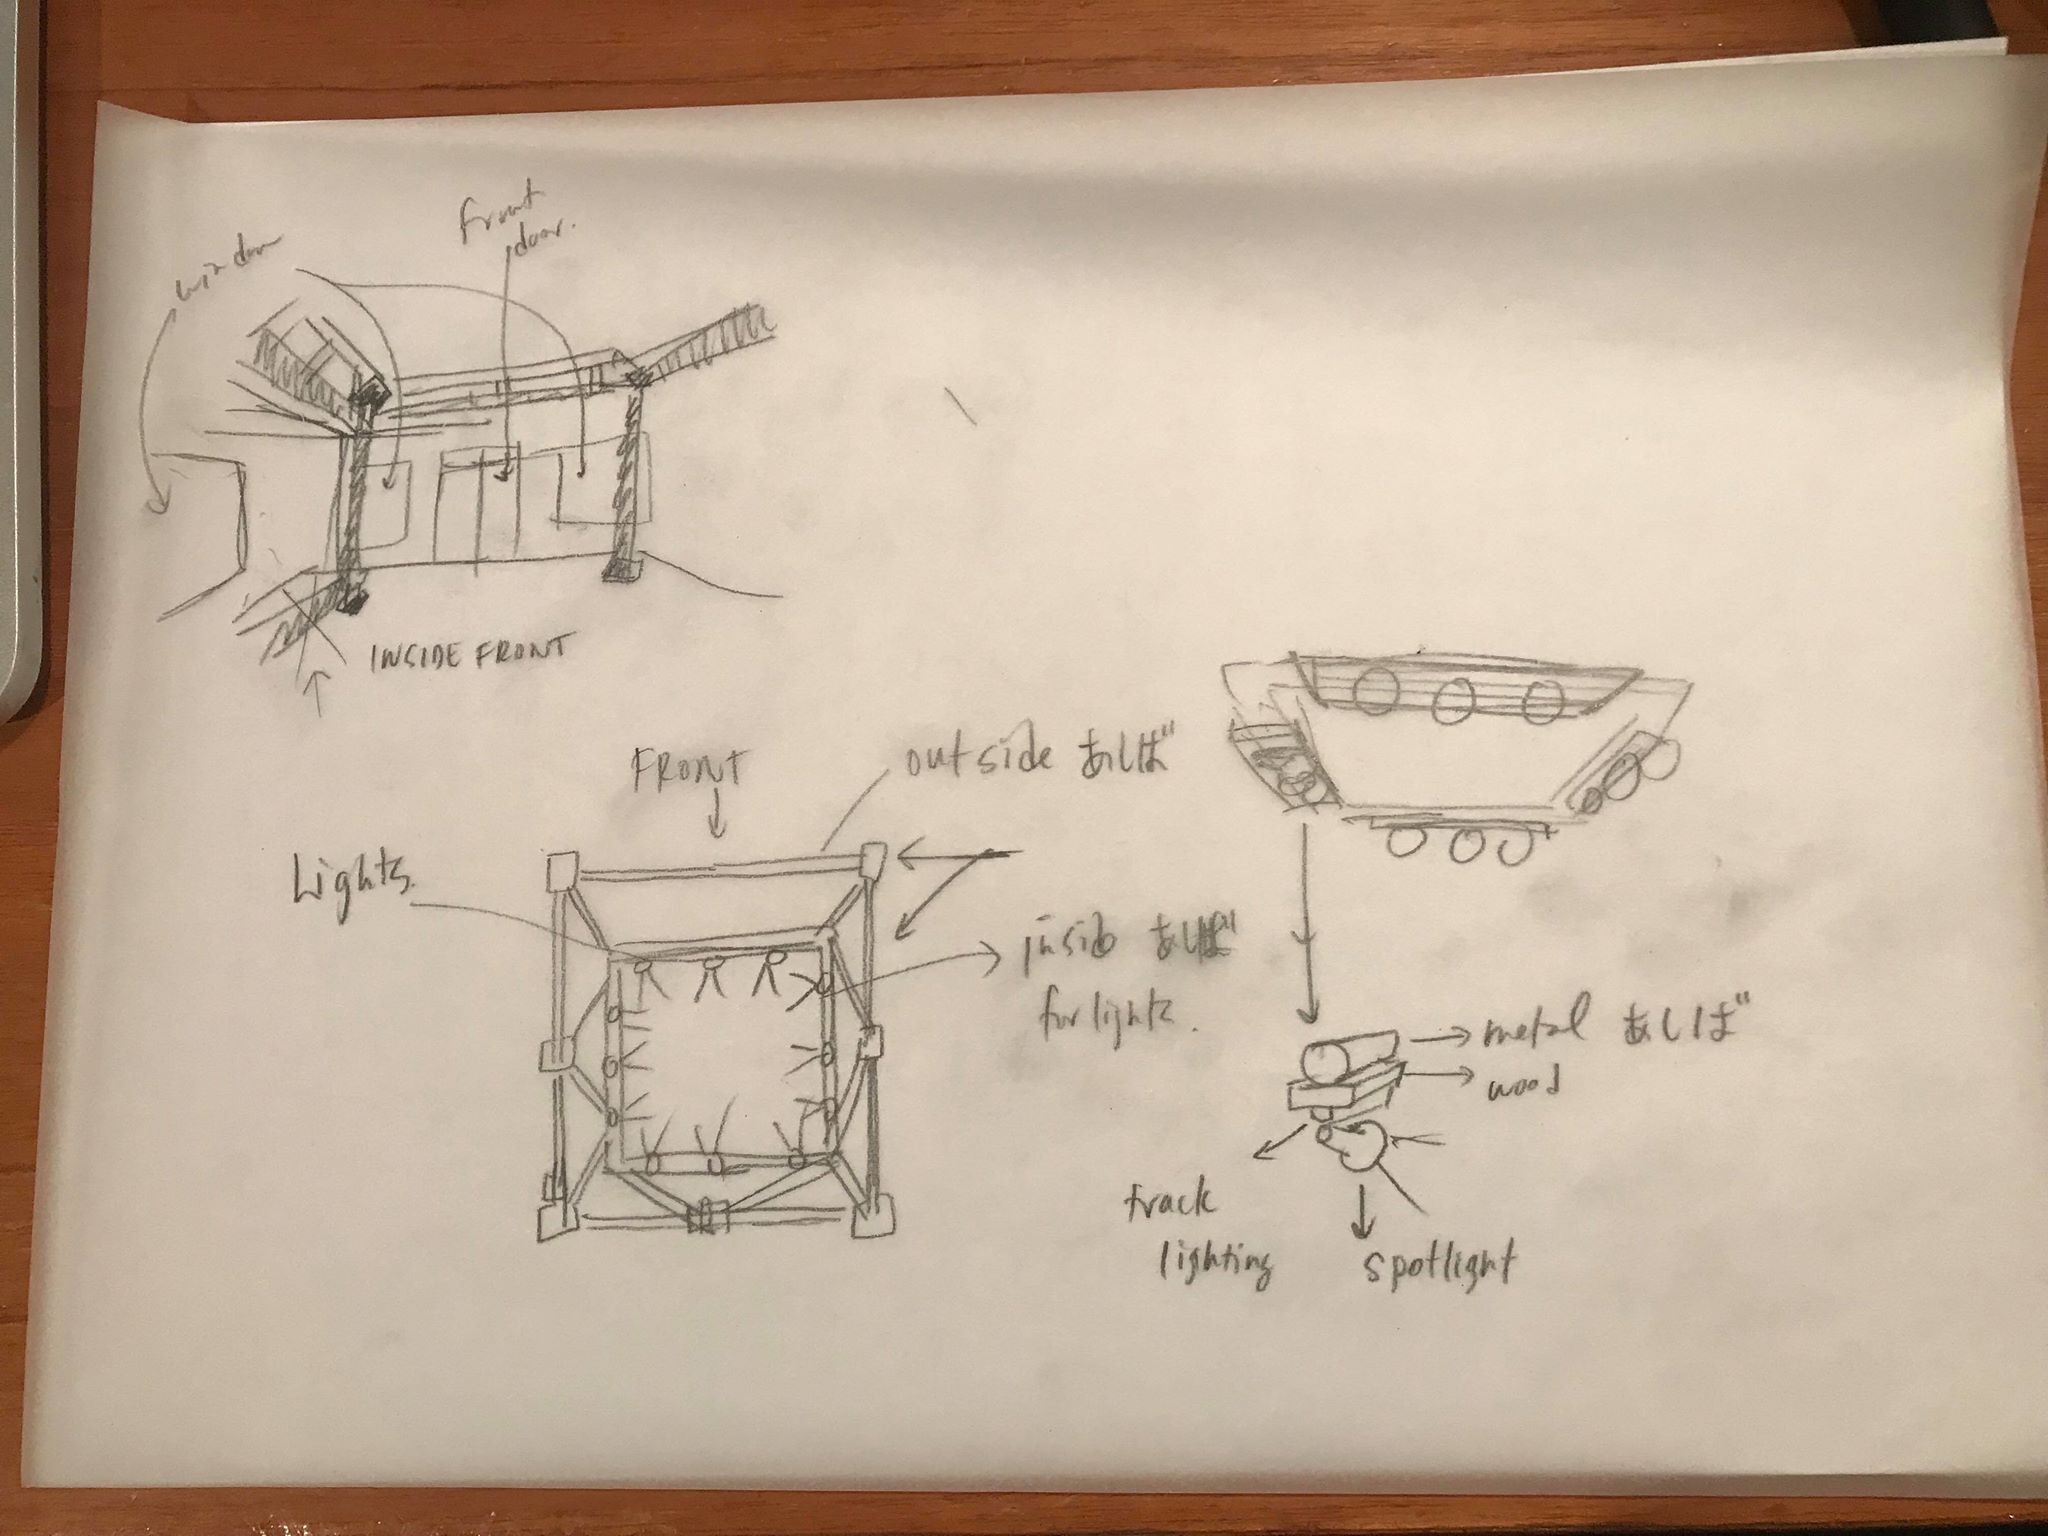 window
Front
door.
INSIDE FRONT
FRONT
outside あしば
Lights
inside あしば
for lights.
metal あしば
wood
track
lighting
spotlight